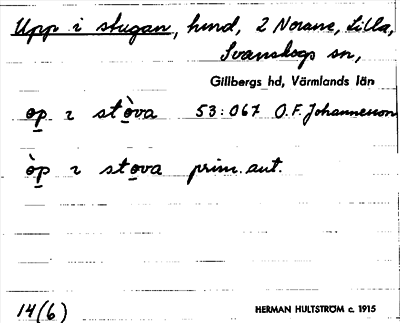 Upp i stugan, hmd, 2 Norane, Lilla,
Svanskogs sn,
Gillbergs hd, Värmlands län
o̲p ɩ stò̲va 53:067 O.F. Johannesson
ò̲p ɩ sto̲va prim. aut.
14(6) HERMAN HULTSTRÖM c. 1915